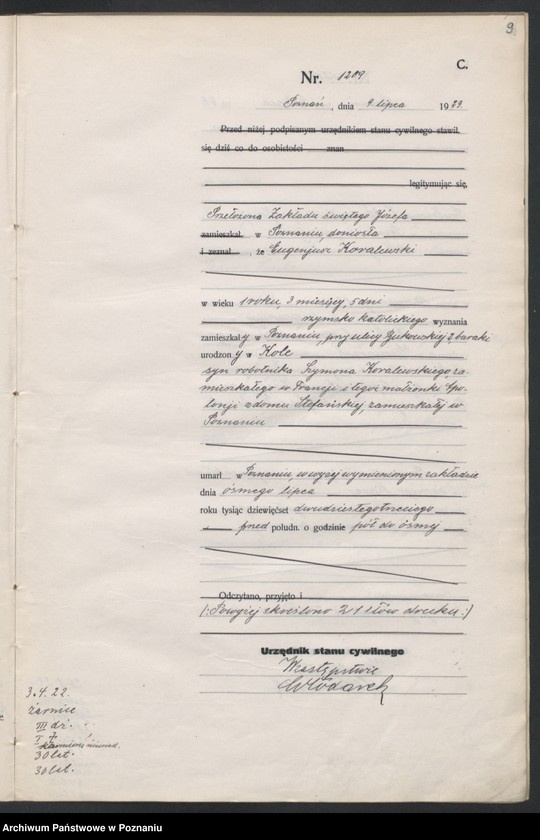 9
C.
Nr. 1209
Poznań, dnia 9. lipca 1923.
Przed niżej podpisanym urzędnikiem stanu cywilnego stawił
się dziś co do osobistości znan
legitymując się,
Przełożona Zakładu świętego Józefa
zamieszkał w Poznaniu, doniosła
i zeznał, że Eugenjusz Kovalewski
w wieku 1 roku, 3 miesięcy, 5 dni
rzymsko katolickiego wyznania
zamieszkały w Poznaniu, przy ulicy Bukowskiej 2, baraki
urodzony w Kole
syn robotnika Szymona Kovalewskiego za-
mieszkałego w Francji i tegoż małżonki Apo-
lonji z domu Stefańskiej, zamieszkałej w
Poznaniu
umarł w Poznaniu, w wyżej wymienionym zakładzie
dnia ósmego lipca
roku tysiąc dziewięćset dwudziestego trzeciego
przed połudn. o godzinie pół do ósmej
Odczytano, przyjęto i
/: Powyżej skreślono 21 słów druku :/
Urzędnik stanu cywilnego
W zastępstwie
Włodarek
3.4.22.
III dz.
I
30 lat.
30 lat.
Archiwum Państwowe w Poznaniu